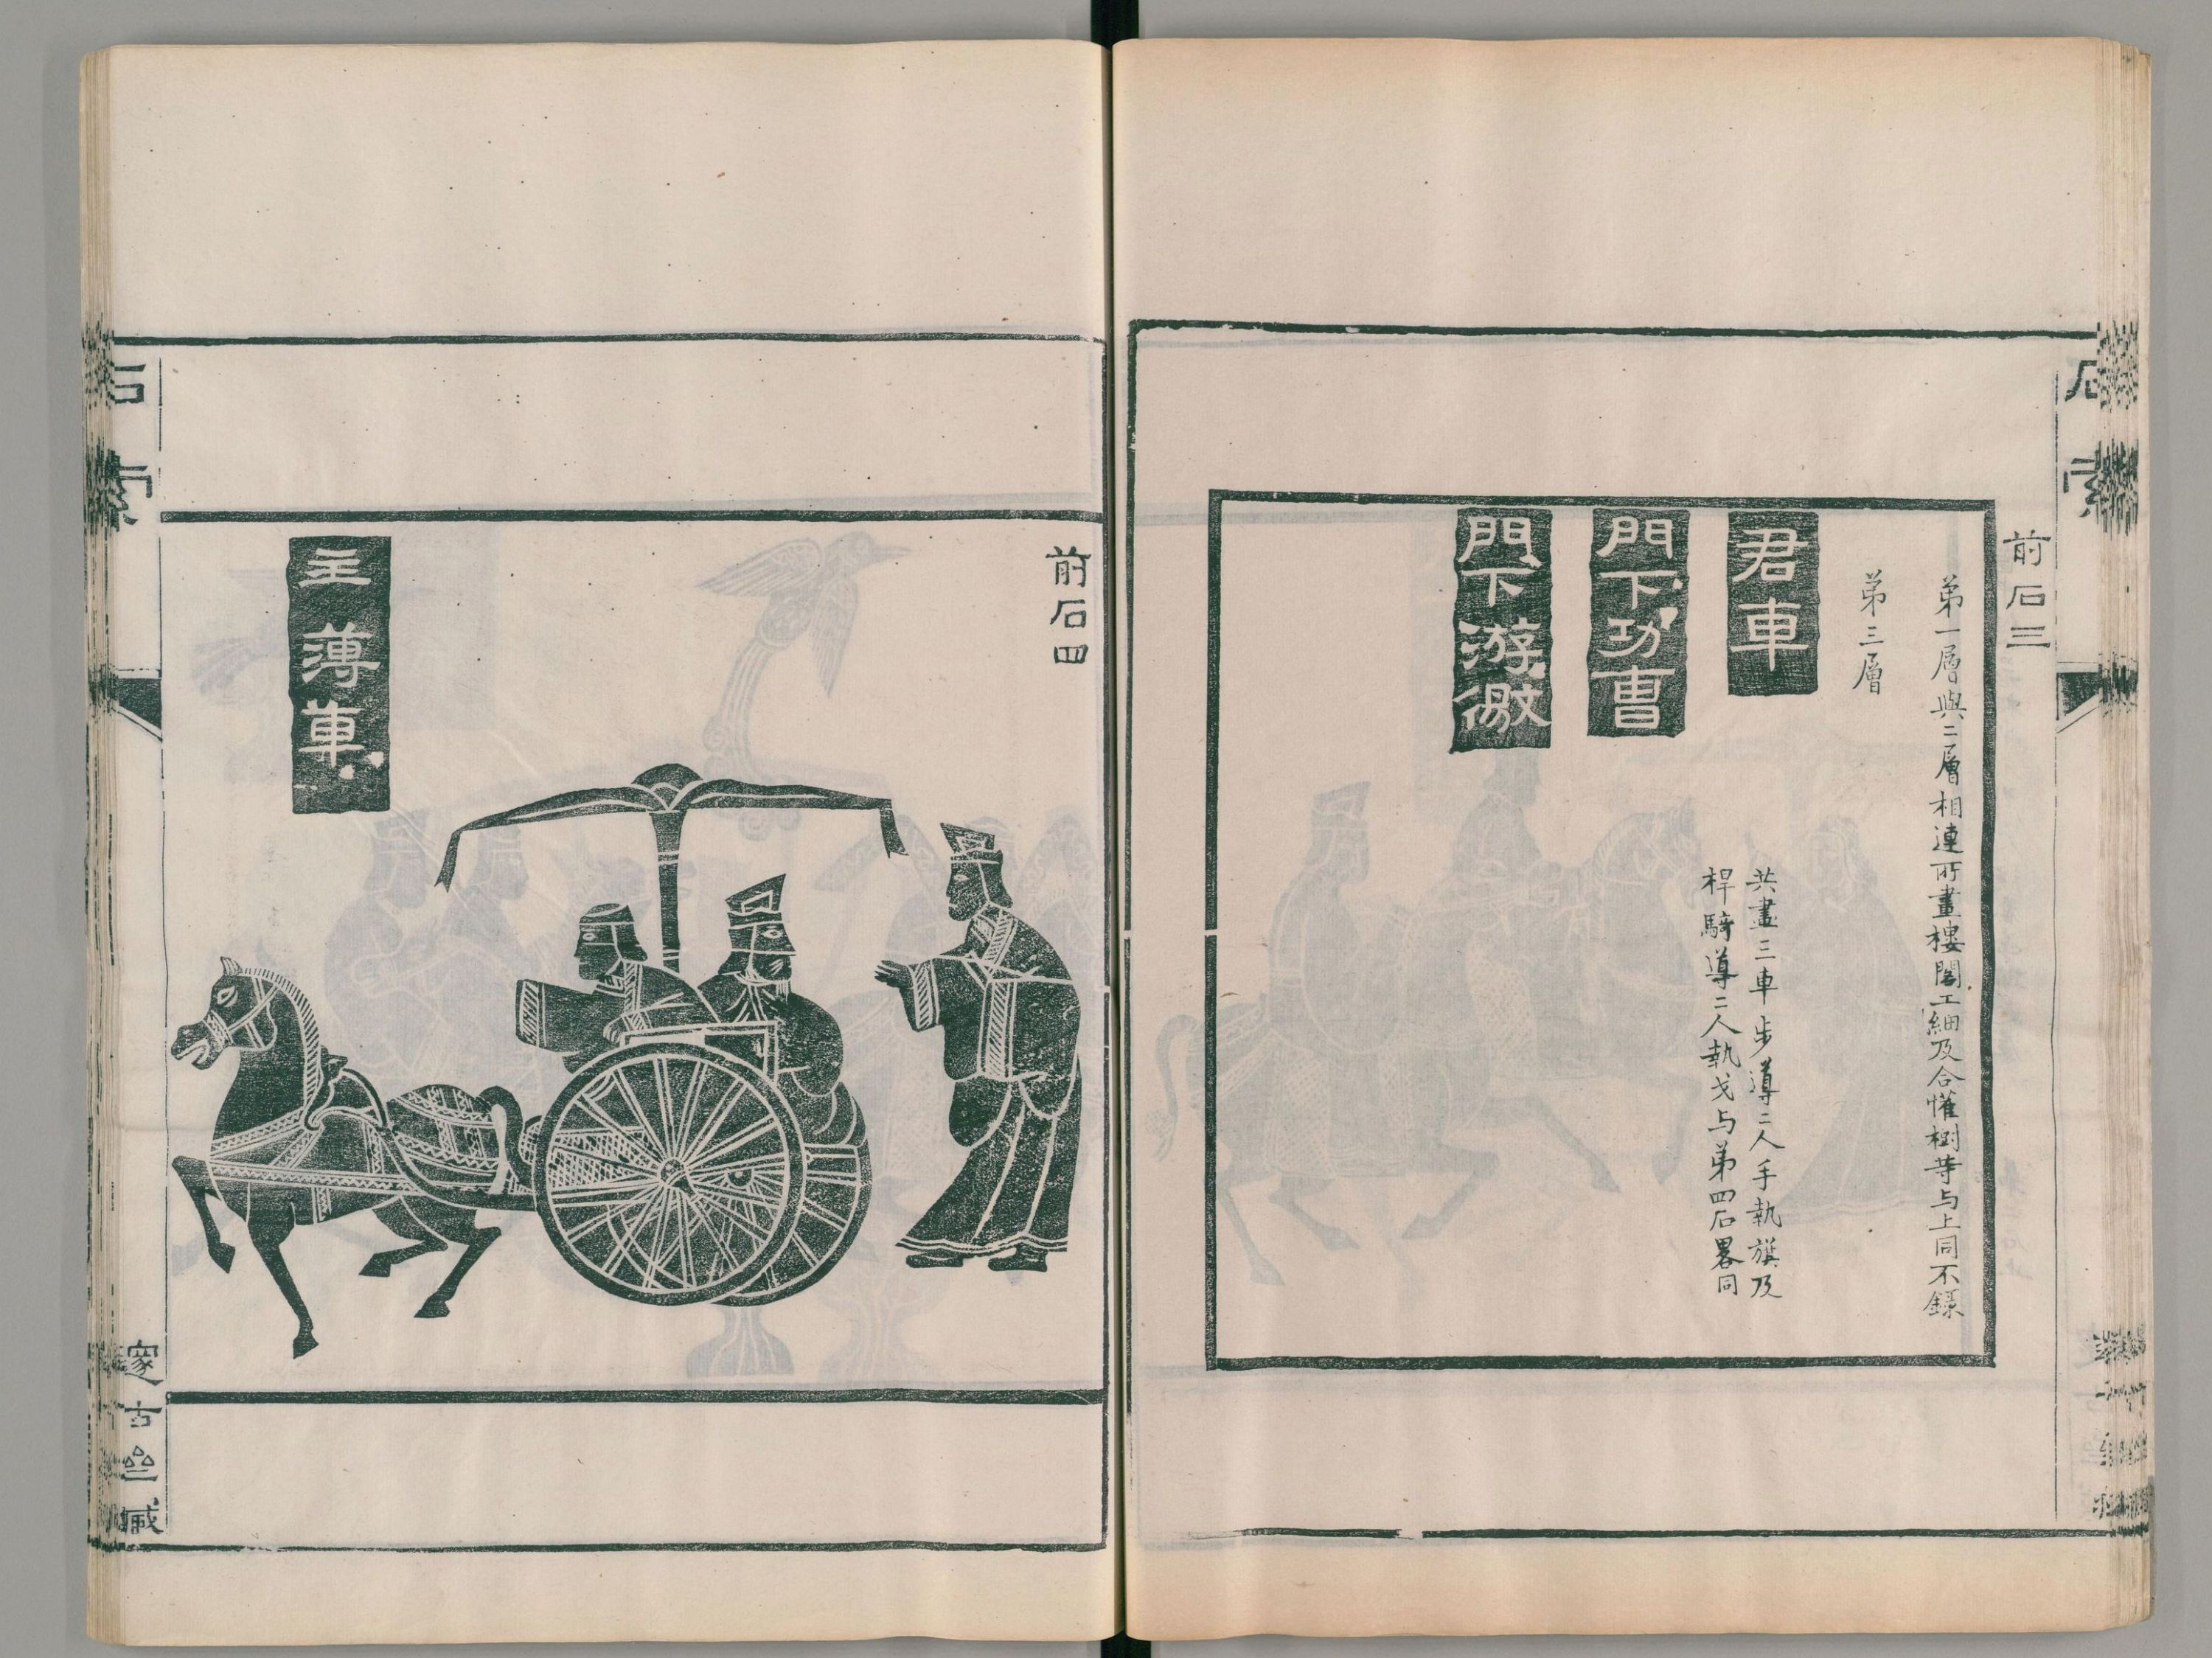 石索
前石三
第一層與二層相連所畫樓閣工細及合懽樹等与上同不錄
第三層
君車
共畫三車步導二人手執旗及
桿騎導二人執戈与第四石畧同
門下功曹
門下游徼
前石四
主薄車
石索
邃古亝臧